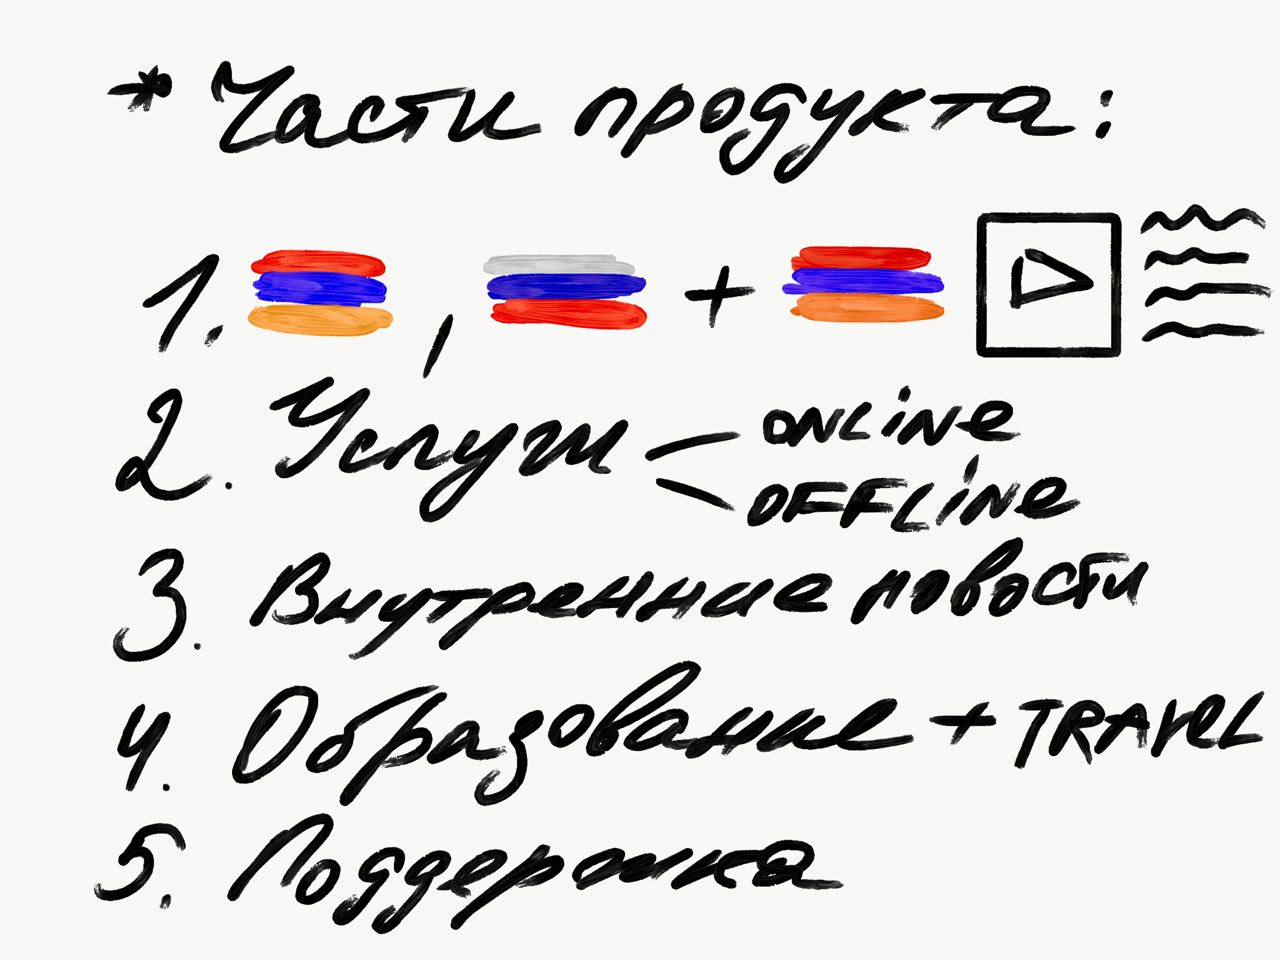 * Части продукта:
1. , +
2. Услуги ONLINE
OFFLINE
3. Внутренние новости
4. Образование + TRAVEL
5. Поддержка